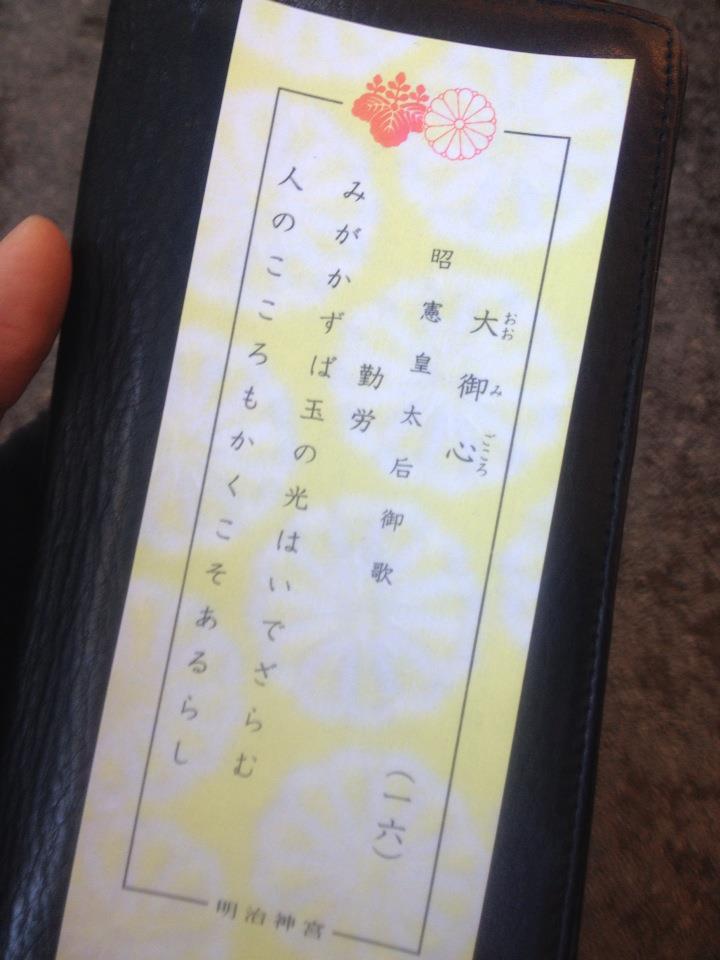 大御心
おおみごころ
昭憲皇太后御歌
(一六)
勤労
みがかずば玉の光はいでざらむ
人のこころもかくこそあるらし
明治神宮